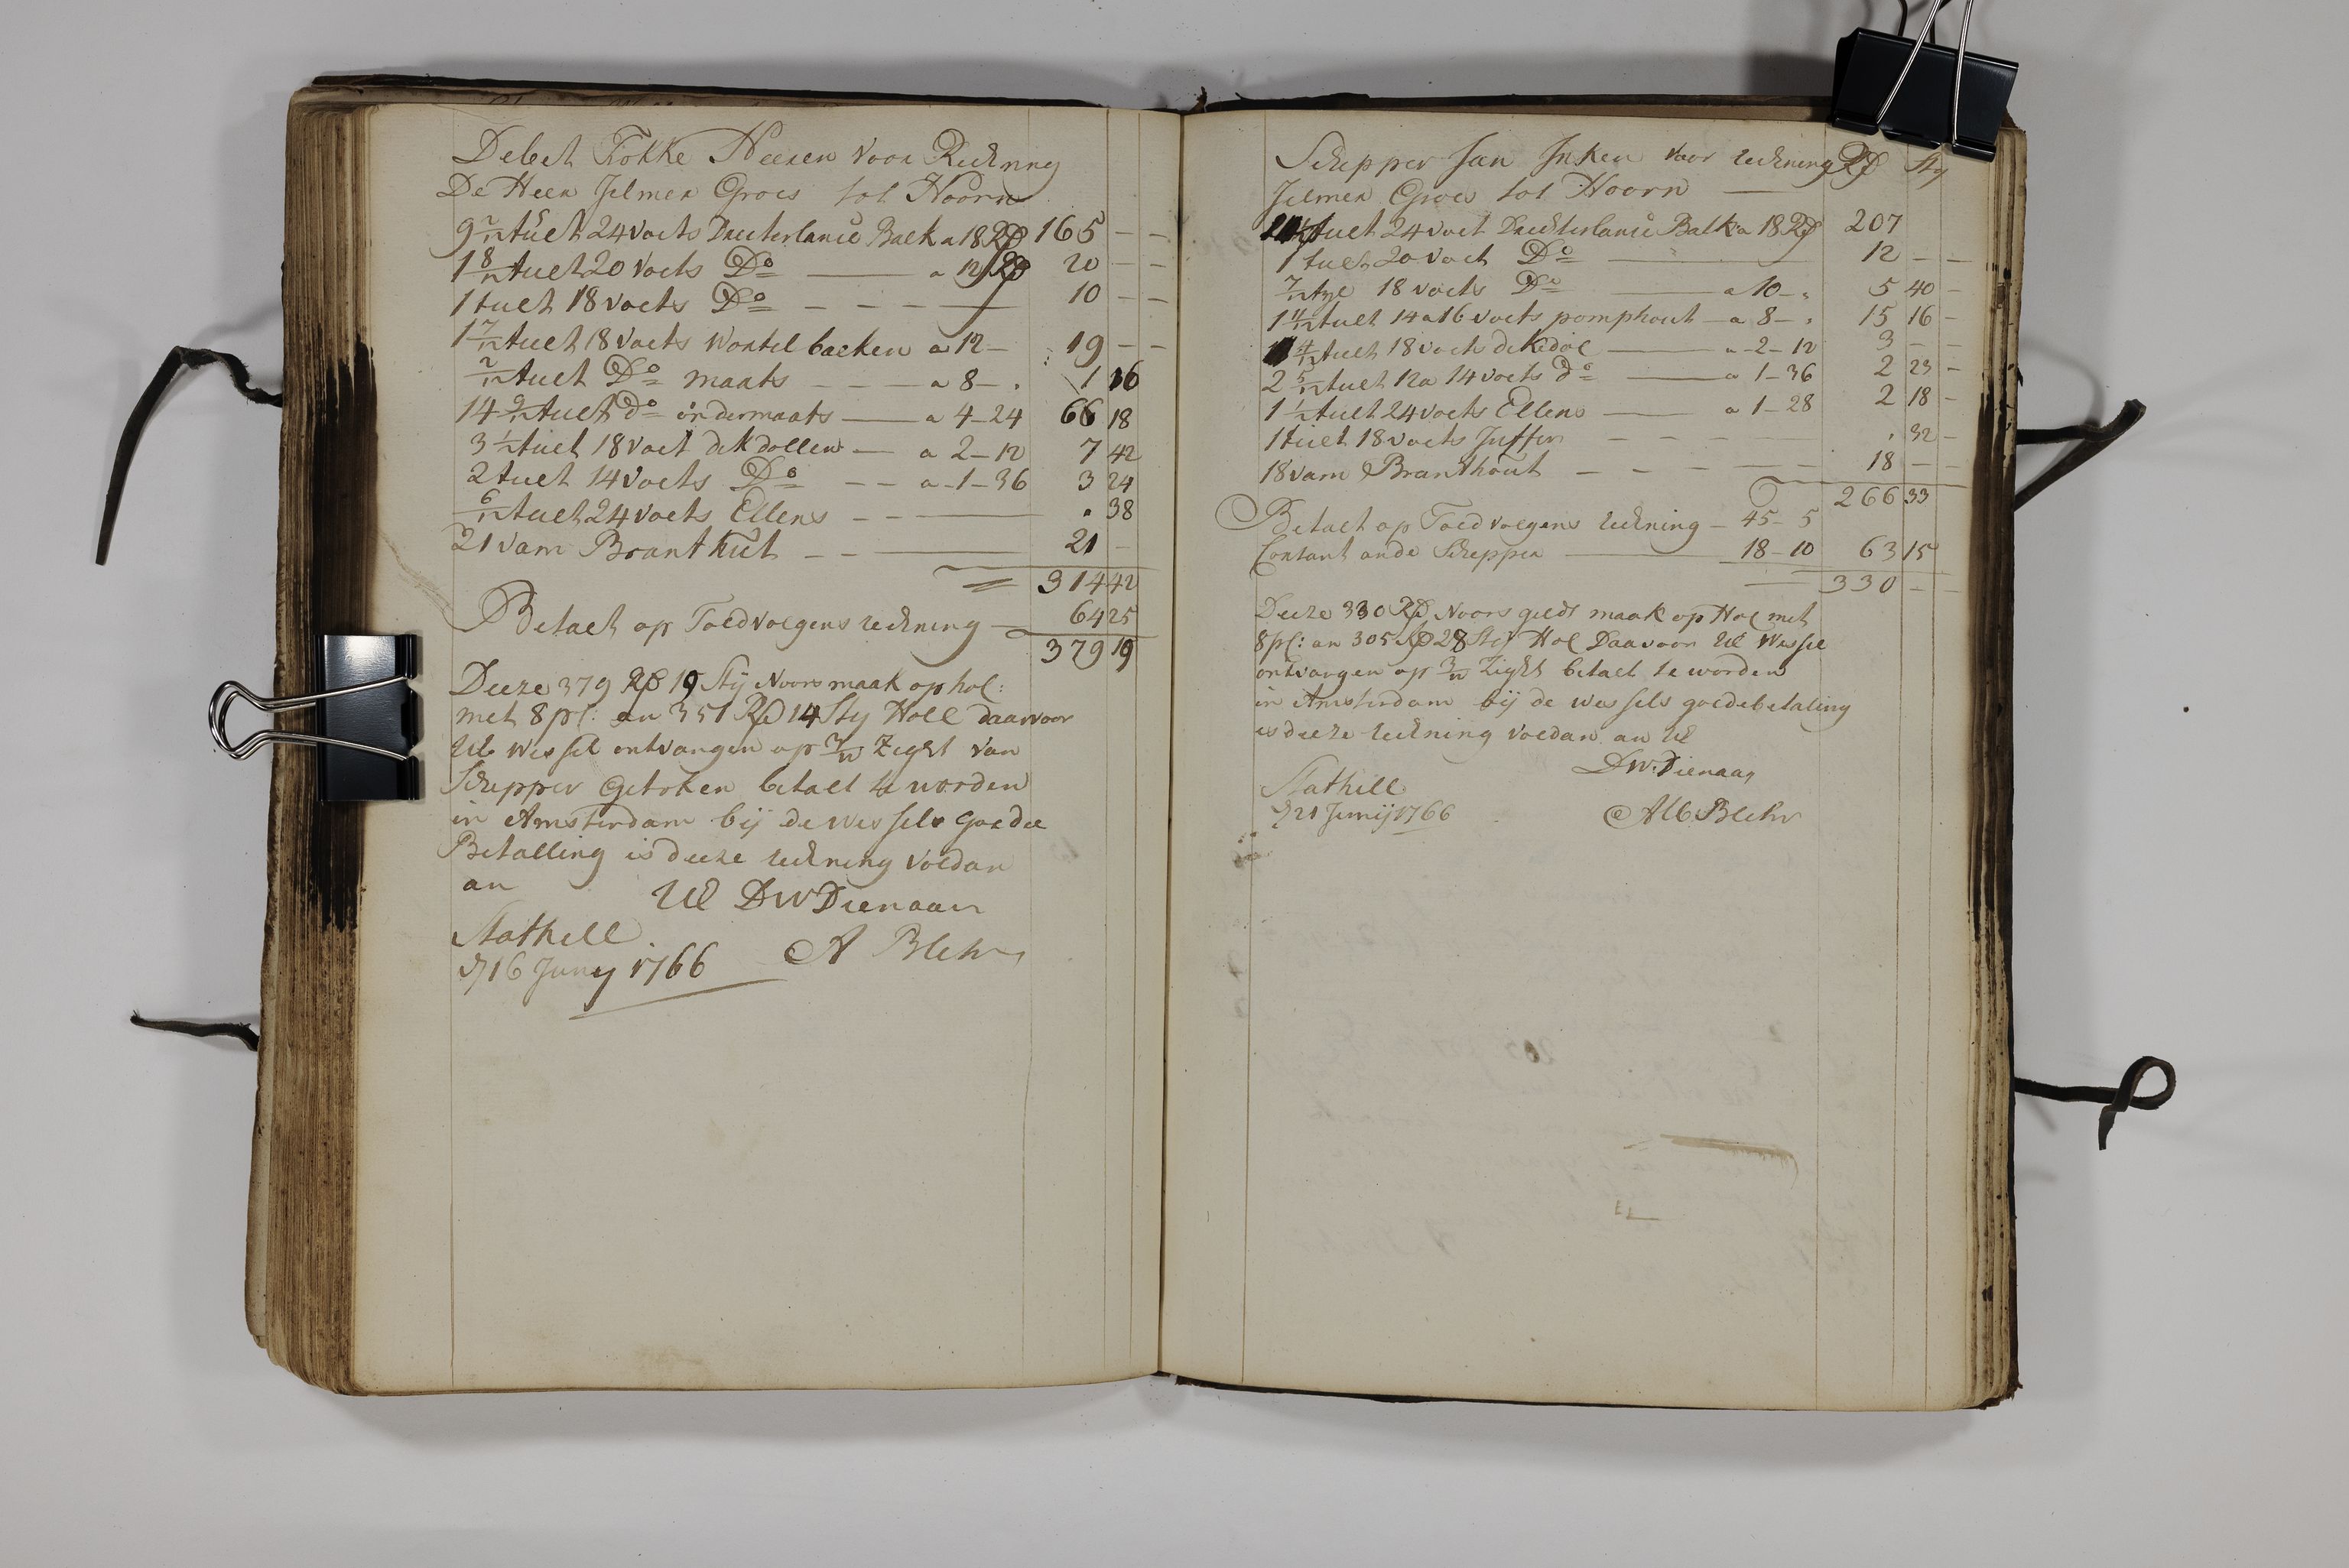 Debet Fokke Heeren voor Reckning
De Heer Jelmer Groes tot Hoorn
9 2/12 tuelt 24 voets Dreeterlansе Balk a 18 RD 165 - -
1 8/12 tuelt 20 voets Do a 12 RD 20 - -
1 tuelt 18 voets Do - - - 10 - -
1 7/12 tuelt 18 voets wortel balken a 12 - 19 - -
2/12 tuelt Do maats - - - a 8 - 1 16
14 9/12 tuelt do ondermaats a 4-24 66 18
3 1/2 tuelt 18 voet dekdollen a 2-12 7 42
2 tuelt 14 voets Do - - a 1-36 3 24
6/12 tuelt 24 voets Ellens - - 38
21 vam Branthut - - 21 -
314 42
Betaelt op Toedvolgens reckning 64 25
379 19
Deeze 379 RD 19 Sty Noors maak op hol:
met 8 pC: an 351 RD 14 Sty Holl daarvoor
UE wessel ontvangen op 3/m Zight van
Schepper Getroken betaelt te worden
in Amsterdam bij de wessels goede
Betalling is deeze reckning voldan
an UE DW Dienaar
Stathell
d 16 Juny 1766 A Blehr
Schepper Jan Inken voor reckning RD Sty
Jelmer Groes tot Hoorn
11 1/2 tuelt 24 voet Dreeterlanse Balk a 18 RD 207
1 tuelt 20 voet Do 12 - -
7/12 tyl 18 voets Do a 10 - 5 40 -
1 11/12 tuelt 14 a 16 voets pomphout a 8 - 15 16 -
1 4/12 tuelt 18 voets dekdol a 2-12 3 - -
2 5/12 tuelt 12 a 14 voets do a 1-36 2 23 -
1 1/2 tuelt 24 voets Ellens a 1-28 2 18 -
1 tuelt 18 voets Juffer - - - 32 -
18 vam Branthout - - - 18 - -
266 33
Betaelt op Toedvolgens reckning - 45-5
Contant an de Schepper 18-10 63 15
330 - -
Deeze 330 RD Noors geldt maak op Hol met
8 pC: an 305 RD 28 Sty Hol Daarvoor UE Wessel
ontvangen op 3/m Zight betaelt te worden
in Amsterdam bij de wessels goede betaling
is deeze reckning voldan an UE
DW: Dienaar
Stathell
d 21 Junij 1766 Alb Blehr